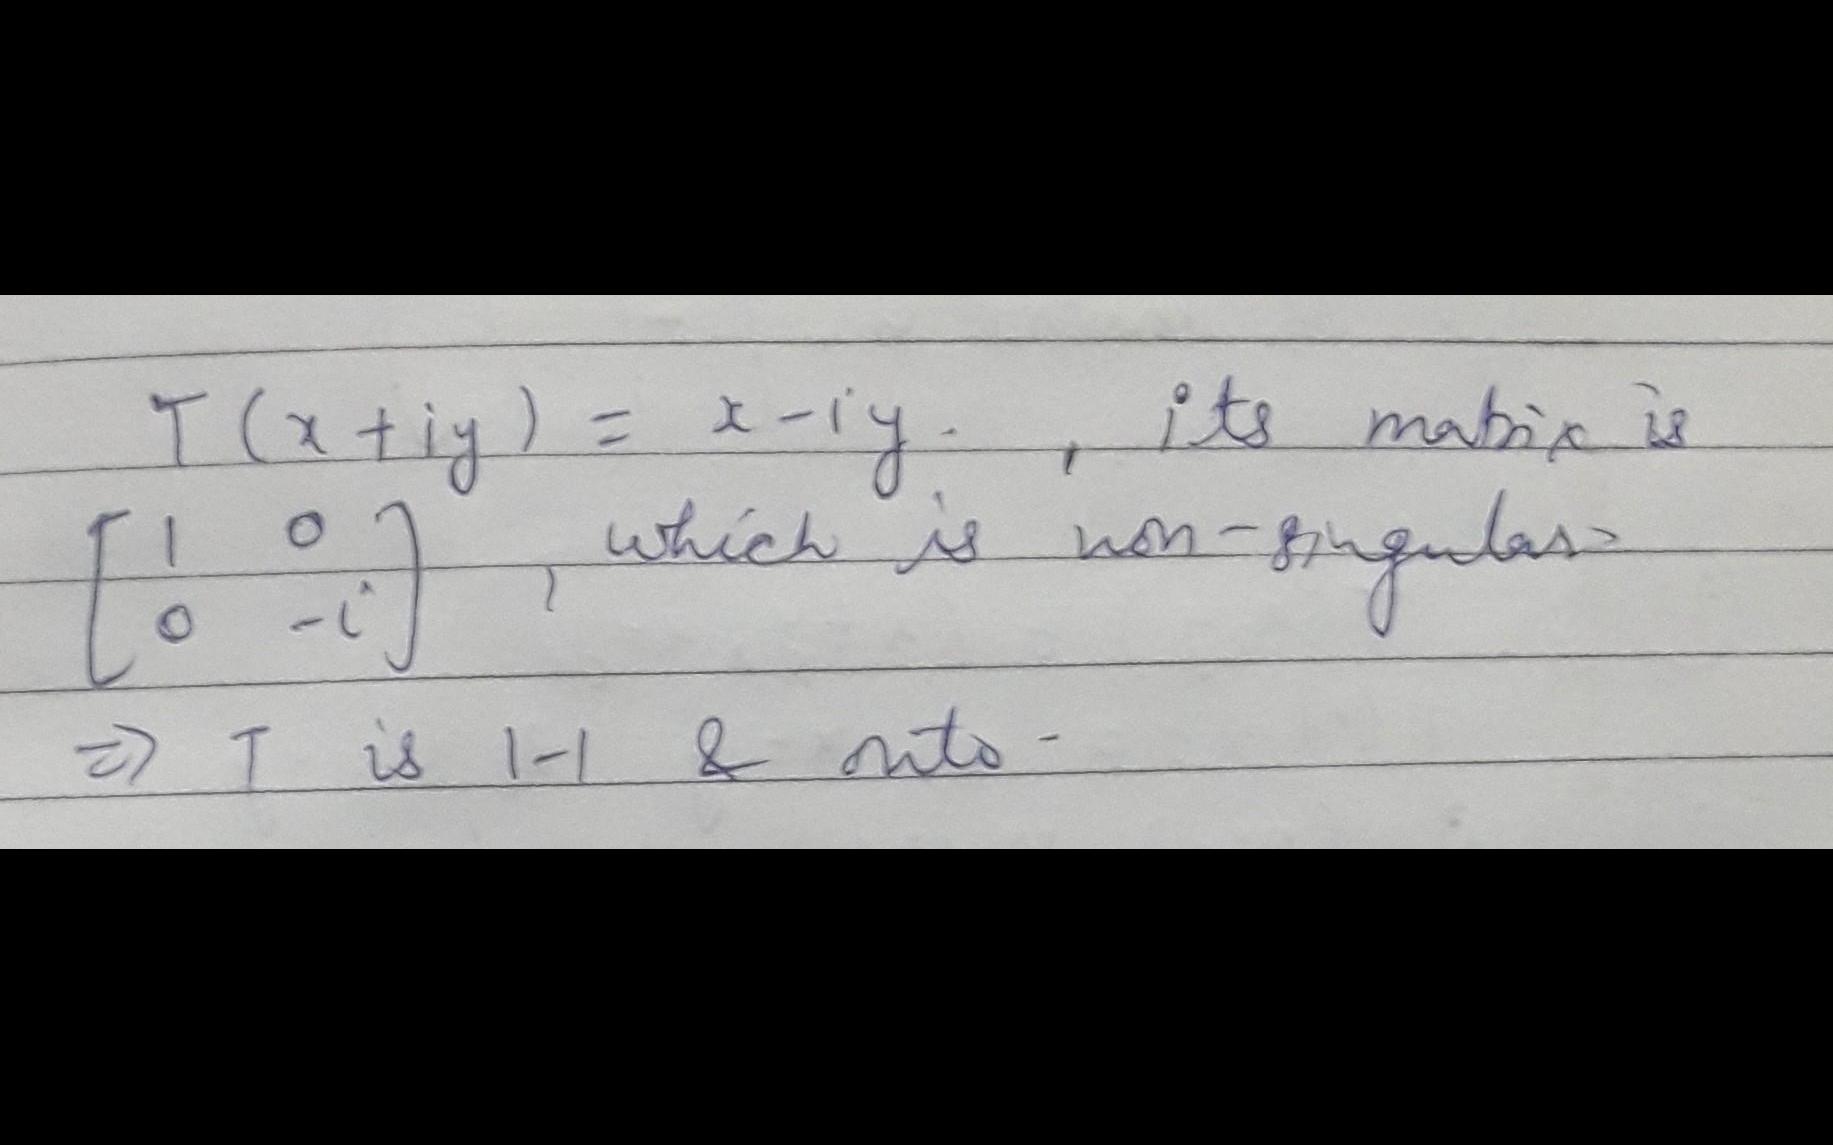 T(x+iy) = x-iy. , its matrix is
[1 0
0 -i] , which is non-singular
=> T is 1-1 & onto.